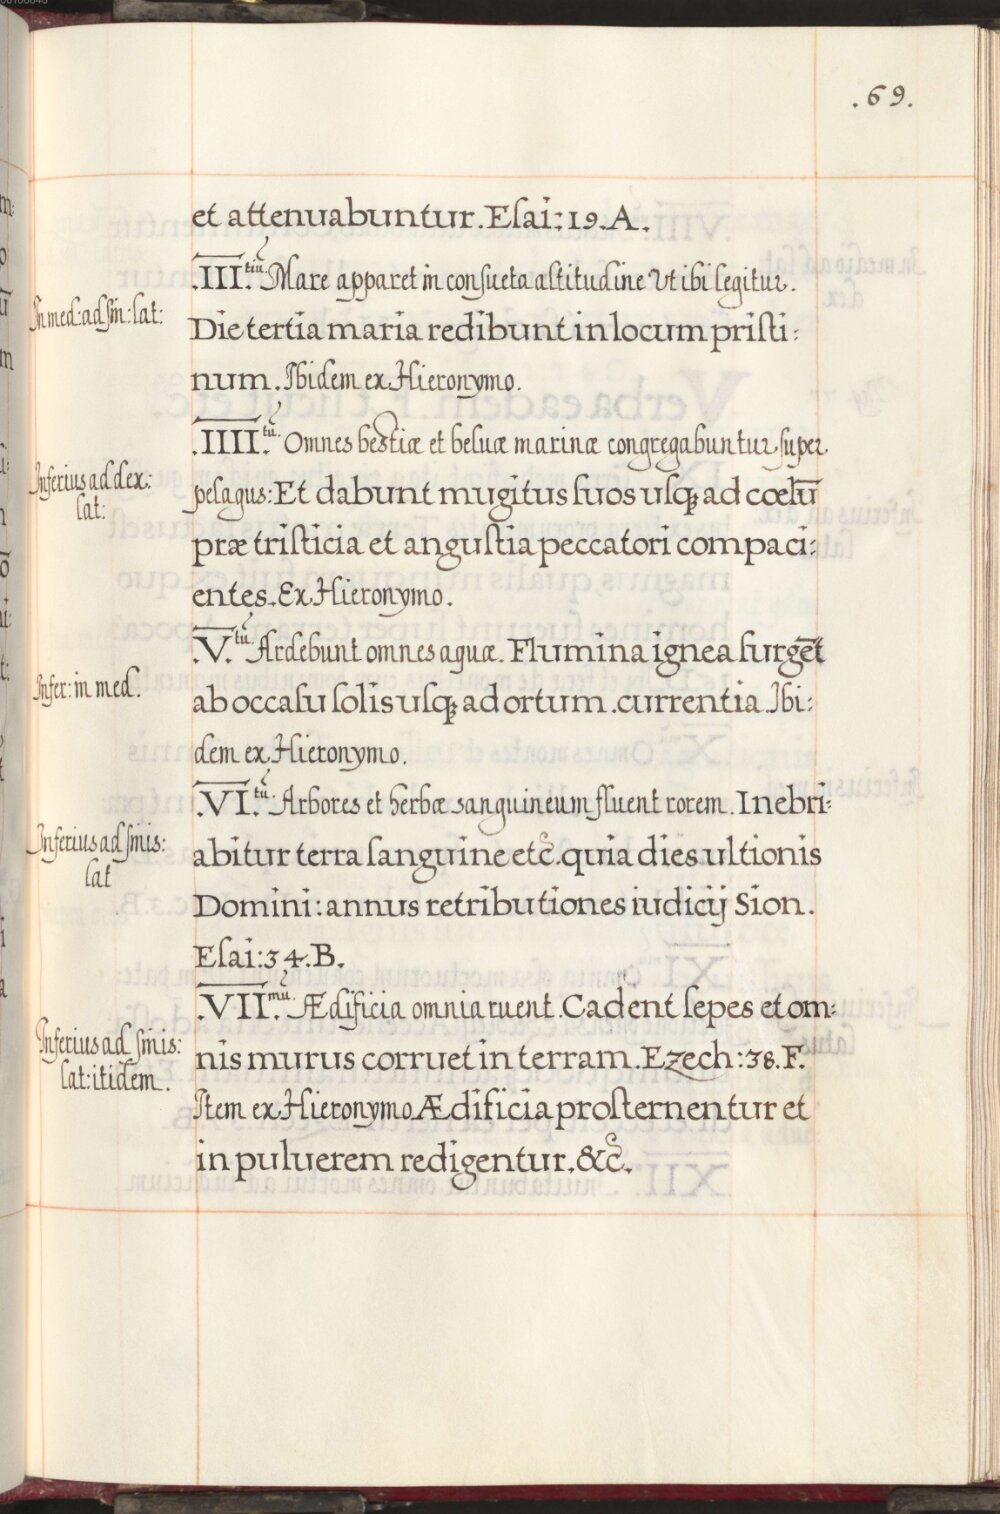 .69.
et attenuabuntur. Esai: 19. A.
.III.tiū. Mare apparet in consueta altitudine vt ibi legitur.
In med: ad sin: lat:
Die tertia maria redibunt in locum pristi:
num. Ibidem ex Hieronymo.
.IIII.tū. Omnes bestiæ et beluæ marinæ congregabuntur super
Inferius ad dex:
lat:
pelagus: Et dabunt mugitus suos usq; ad cœlū
præ tristicia et angustia peccatori compaci:
entes. Ex Hieronymo.
.V.tū. Ardebunt omnes aquæ. Flumina ignea surgēt
Infer: in med.
ab occasu solis usq; ad ortum. currentia. Ibi:
dem ex Hieronymo.
.VI.tū. Arbores et herbæ sanguineum fluent rorem. Inebri:
Inferius ad sinis:
lat
abitur terra sanguine etc̃. quia dies ultionis
Domini: annus retributiones iudicij Sion.
Esai: 34. B.
.VII.mū. Ædificia omnia ruent. Cadent sepes et om:
Inferius ad sinis:
lat: itidem.
nis murus corruet in terram. Ezech: 38. F.
Item ex Hieronymo Ædificia prosternentur et
in puluerem redigentur. &c̃.